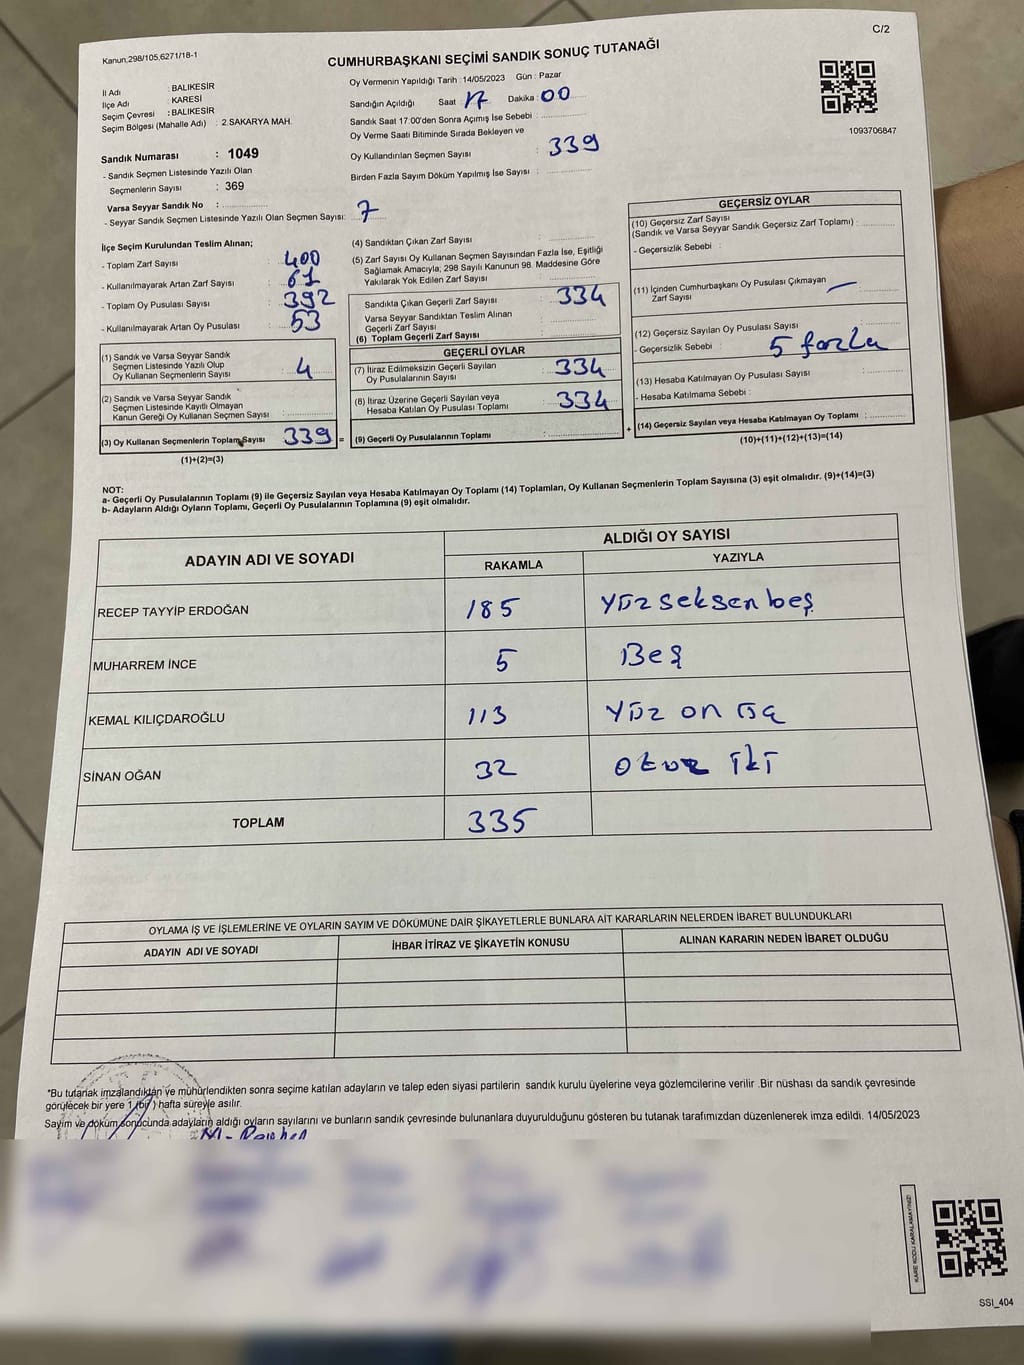 Kanun,298/105,6271/18-1
C/2
CUMHURBAŞKANI SEÇİMİ SANDIK SONUÇ TUTANAĞI
İl Adı : BALIKESİR
İlçe Adı : KARESİ
Seçim Çevresi : BALIKESİR
Seçim Bölgesi (Mahalle Adı) : 2.SAKARYA MAH.
Sandık Numarası : 1049
- Sandık Seçmen Listesinde Yazılı Olan
Seçmenlerin Sayısı : 369
Varsa Seyyar Sandık No :
- Seyyar Sandık Seçmen Listesinde Yazılı Olan Seçmen Sayısı: 7
Oy Vermenin Yapıldığı Tarih : 14/05/2023 Gün : Pazar
Sandığın Açıldığı Saat 17 Dakika : 00
Sandık Saat 17:00'den Sonra Açımış İse Sebebi :
Oy Verme Saati Bitiminde Sırada Bekleyen ve
Oy Kullandırılan Seçmen Sayısı : 339
Birden Fazla Sayım Döküm Yapılmış İse Sayısı :
1093706847
İlçe Seçim Kurulundan Teslim Alınan;
- Toplam Zarf Sayısı : 400
- Kullanılmayarak Artan Zarf Sayısı : 61
- Toplam Oy Pusulası Sayısı : 392
- Kullanılmayarak Artan Oy Pusulası : 53
(1) Sandık ve Varsa Seyyar Sandık
Seçmen Listesinde Yazılı Olup
Oy Kullanan Seçmenlerin Sayısı : 4
(2) Sandık ve Varsa Seyyar Sandık
Seçmen Listesinde Kayıtlı Olmayan
Kanun Gereği Oy Kullanan Seçmen Sayısı :
(3) Oy Kullanan Seçmenlerin Toplam Sayısı 339 =
(1)+(2)=(3)
(4) Sandıktan Çıkan Zarf Sayısı :
(5) Zarf Sayısı Oy Kullanan Seçmen Sayısından Fazla İse, Eşitliği
Sağlamak Amacıyla; 298 Sayılı Kanunun 98. Maddesine Göre
Yakılarak Yok Edilen Zarf Sayısı :
Sandıkla Çıkan Geçerli Zarf Sayısı : 334
Varsa Seyyar Sandıktan Teslim Alınan
Geçerli Zarf Sayısı :
(6) Toplam Geçerli Zarf Sayısı :
GEÇERLİ OYLAR
(7) İtiraz Edilmeksizin Geçerli Sayılan
Oy Pusulalarının Sayısı : 334
(8) İtiraz Üzerine Geçerli Sayılan veya
Hesaba Katılan Oy Pusulası Toplamı : 334
(9) Geçerli Oy Pusulalarının Toplamı : +
GEÇERSİZ OYLAR
(10) Geçersiz Zarf Sayısı
(Sandık ve Varsa Seyyar Sandık Geçersiz Zarf Toplamı) :
- Geçersizlik Sebebi :
(11) İçinden Cumhurbaşkanı Oy Pusulası Çıkmayan
Zarf Sayısı : —
(12) Geçersiz Sayılan Oy Pusulası Sayısı :
- Geçersizlik Sebebi : 5 fazla
(13) Hesaba Katılmayan Oy Pusulası Sayısı :
- Hesaba Katılmama Sebebi :
(14) Geçersiz Sayılan veya Hesaba Katılmayan Oy Toplamı :
(10)+(11)+(12)+(13)=(14)
NOT:
a- Geçerli Oy Pusulalarının Toplamı (9) ile Geçersiz Sayılan veya Hesaba Katılmayan Oy Toplamı (14) Toplamları, Oy Kullanan Seçmenlerin Toplam Sayısına (3) eşit olmalıdır. (9)+(14)=(3)
b- Adayların Aldığı Oyların Toplamı, Geçerli Oy Pusulalarının Toplamına (9) eşit olmalıdır.
ADAYIN ADI VE SOYADI
ALDIĞI OY SAYISI
RAKAMLA YAZIYLA
RECEP TAYYİP ERDOĞAN 185 Yüzseksenbeş
MUHARREM İNCE 5 Beş
KEMAL KILIÇDAROĞLU 113 Yüz on üç
SİNAN OĞAN 32 Otuz iki
TOPLAM 335
OYLAMA İŞ VE İŞLEMLERİNE VE OYLARIN SAYIM VE DÖKÜMÜNE DAİR ŞİKAYETLERLE BUNLARA AİT KARARLARIN NELERDEN İBARET BULUNDUKLARI
ADAYIN ADI VE SOYADI İHBAR İTİRAZ VE ŞİKAYETİN KONUSU ALINAN KARARIN NEDEN İBARET OLDUĞU
*Bu tutanak imzalandıktan ve mühürlendikten sonra seçime katılan adayların ve talep eden siyasi partilerin sandık kurulu üyelerine veya gözlemcilerine verilir .Bir nüshası da sandık çevresinde
görülecek bir yere 1 (bir ) hafta süreyle asılır.
Sayım ve döküm sonucunda adayların aldığı oyların sayılarını ve bunların sandık çevresinde bulunanlara duyurulduğunu gösteren bu tutanak tarafımızdan düzenlenerek imza edildi. 14/05/2023
KARE KODU KARALAMAYINIZ!
SSI_404